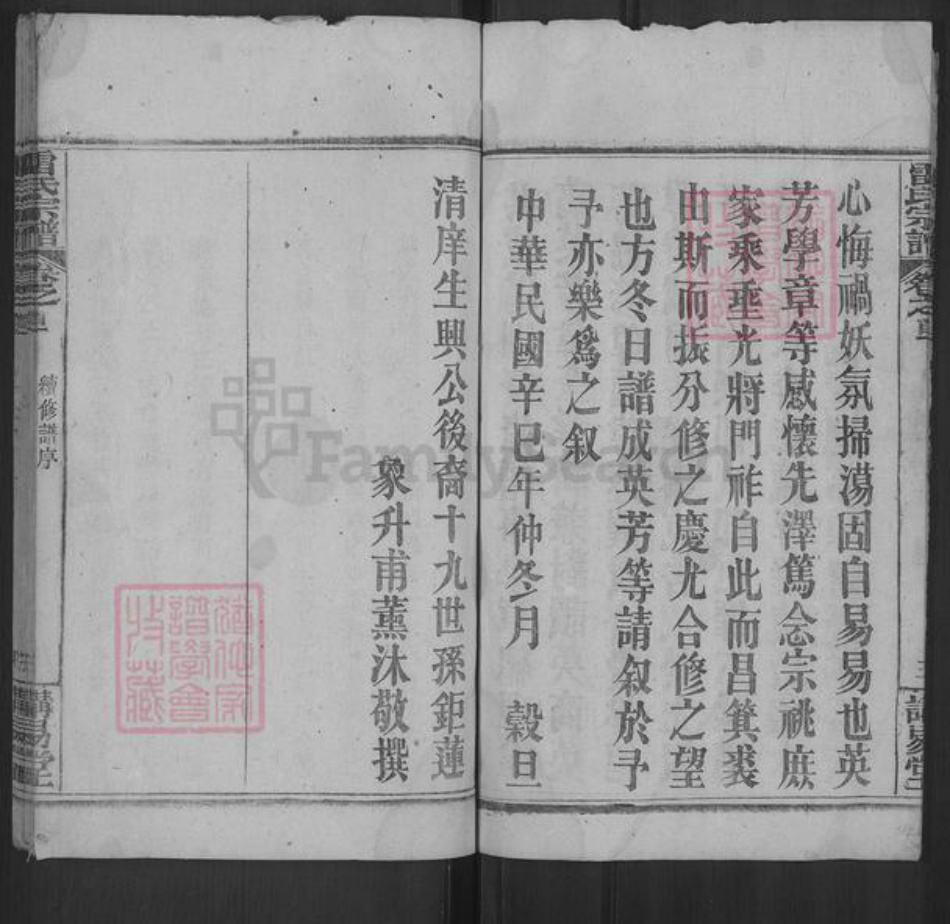 雷氏宗譜
卷之首
講易堂
心悔禍妖氛掃蕩固自易易也英
芳學章等感懷先澤篤念宗祧庶
家乘垂光將門祚自此而昌箕裘
由斯而振分修之慶尤合修之望
也方冬日譜成英芳等請叙於予
予亦樂爲之叙
中華民國辛巳年仲冬月 穀旦
清庠生興公後裔十九世孫鉅蓮
象升甫薰沐敬撰
雷氏宗譜
卷之首
續修譜序
講易堂
FamilySearch
譜學會